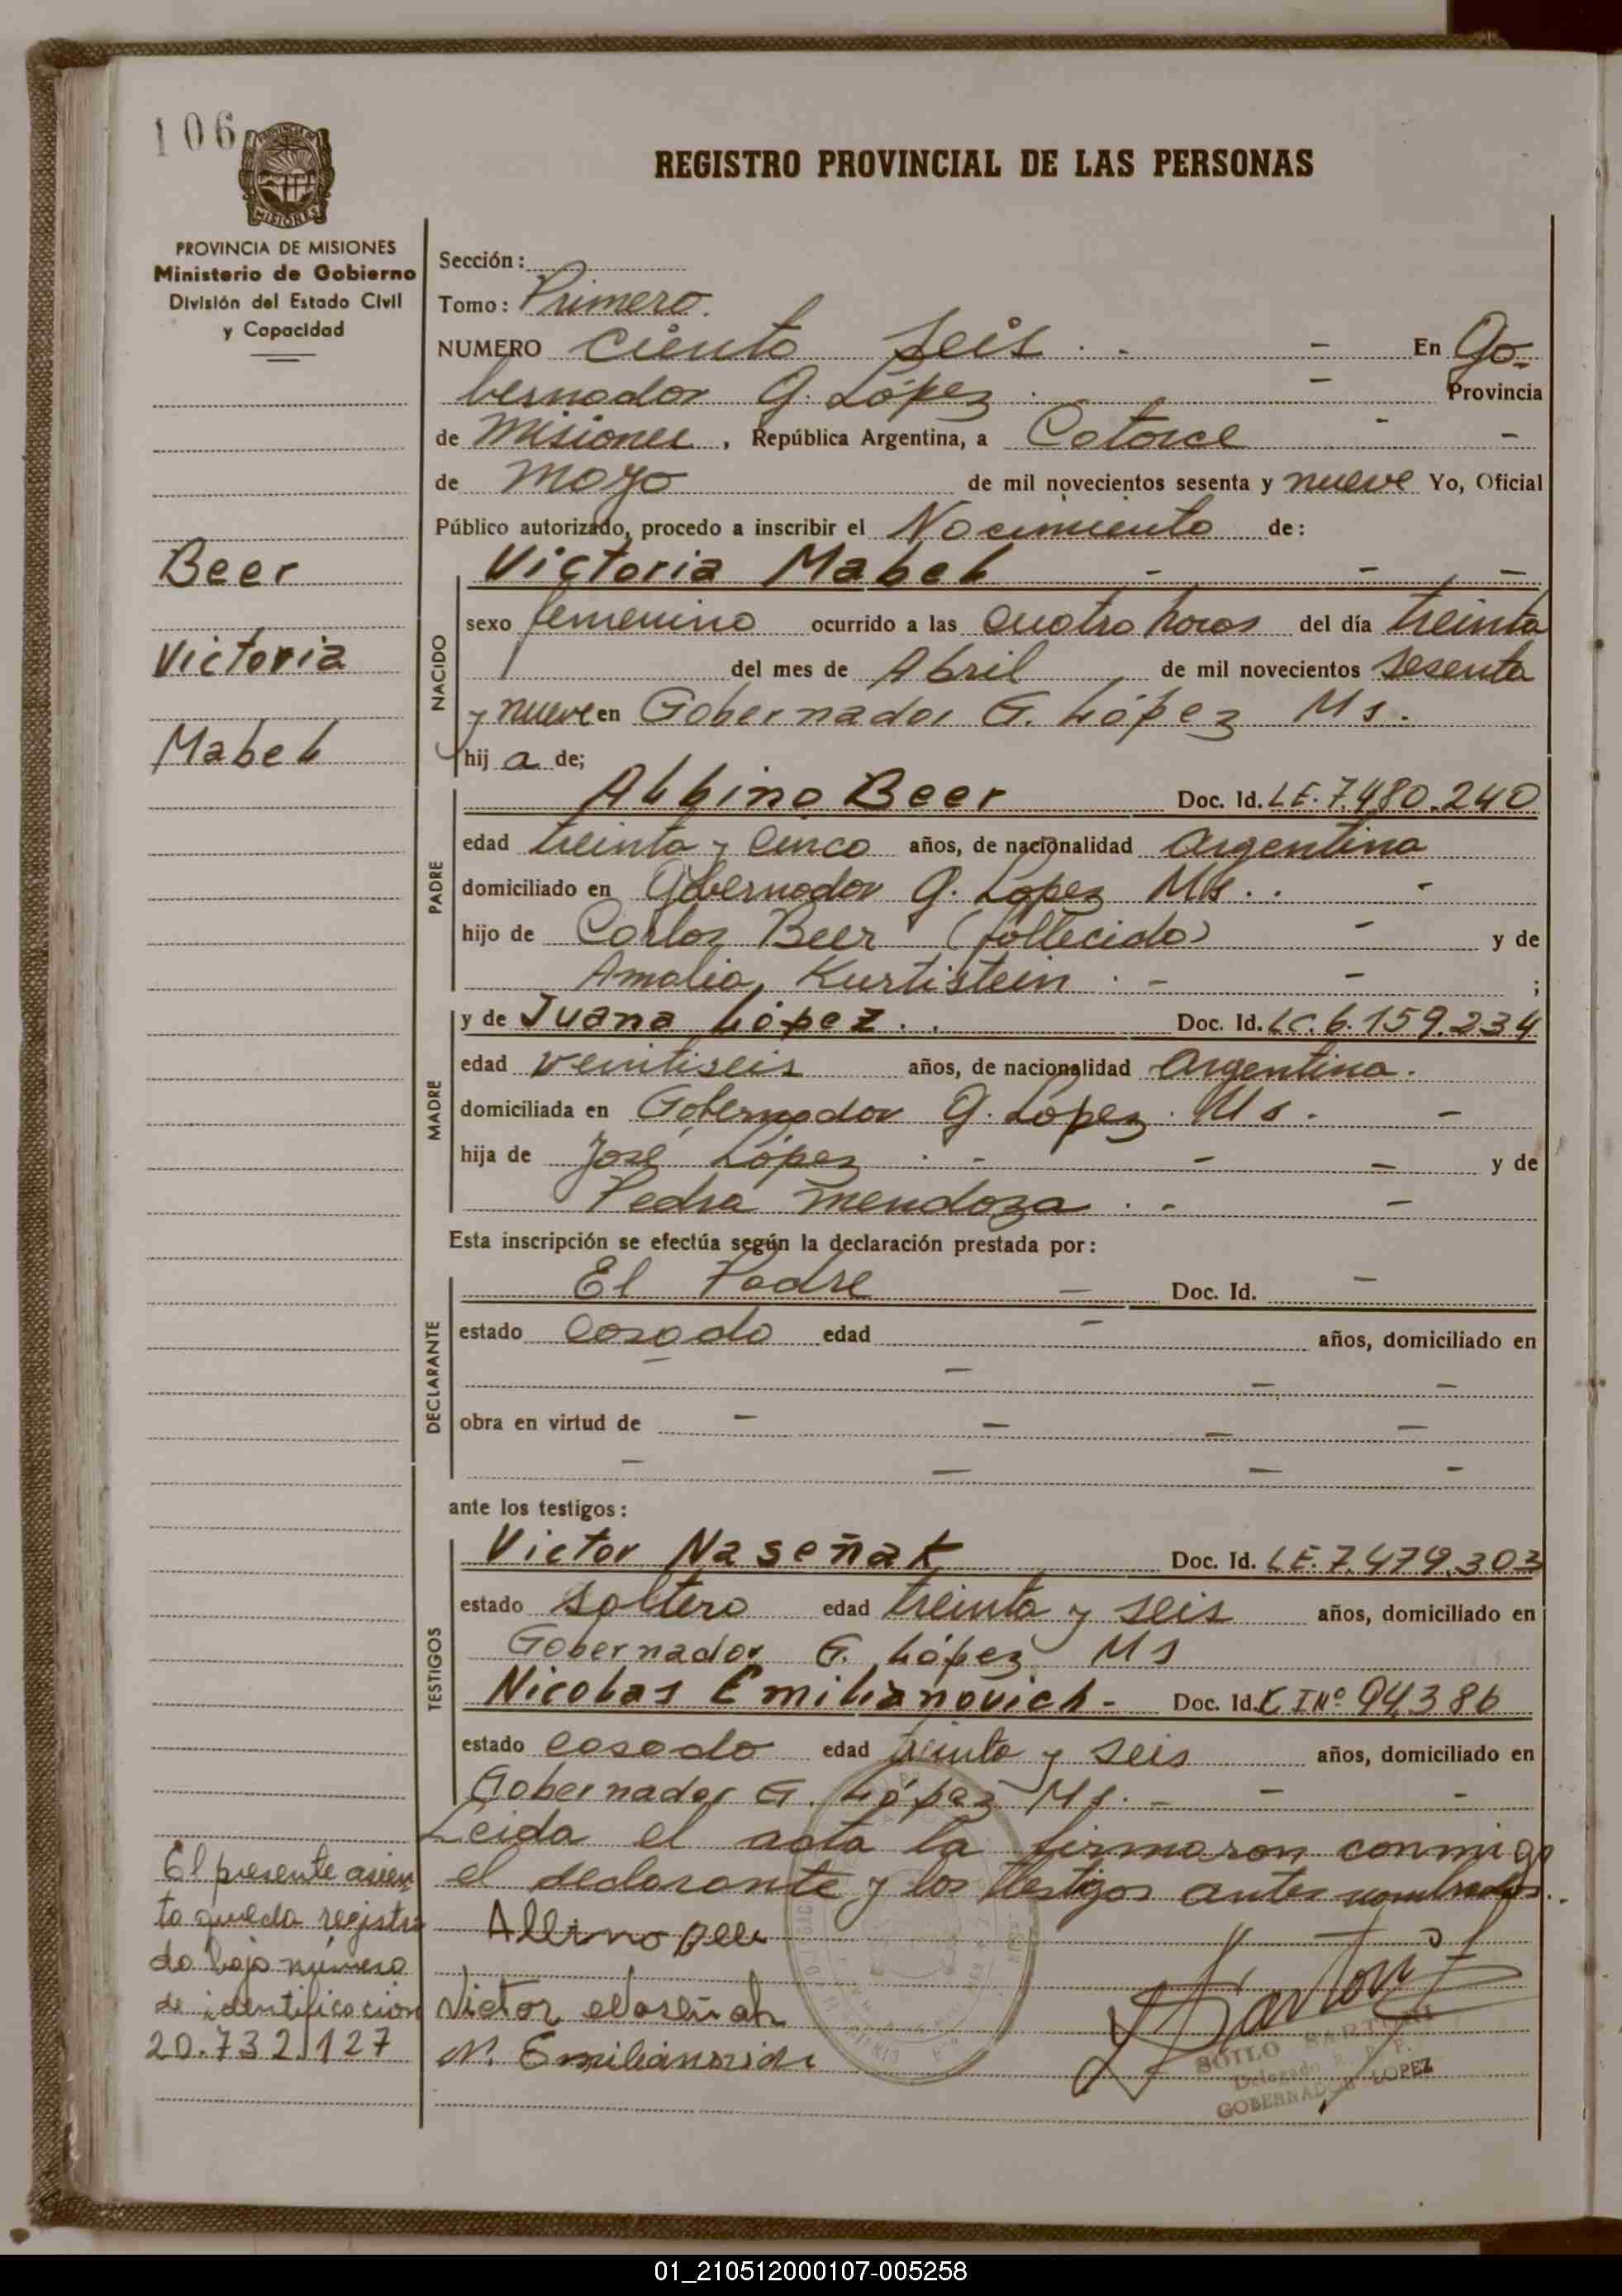 106
PROVINCIA DE MISIONES
Ministerio de Gobierno
División del Estado Civil
y Capacidad
REGISTRO PROVINCIAL DE LAS PERSONAS
Sección:
Tomo: Primero.
NUMERO ciento seis . - - En Go-
bernador G. López . - Provincia
de Misiones , República Argentina, a Catorce - -
de mayo de mil novecientos sesenta y nueve Yo, Oficial
Público autorizado, procedo a inscribir el Nacimiento de:
Beer
Victoria
Mabel
NACIDO
Victoria Mabel - - -
sexo femenino ocurrido a las cuatro horas del día treinta
del mes de Abril de mil novecientos sesenta
y nueve en Gobernador G. López Ms.
hij a de;
PADRE
Albino Beer Doc. Id. LE. 7.480.240
edad treinta y cinco años, de nacionalidad argentina
domiciliado en Gobernador G. Lopez Ms. . -
hijo de Carlos Beer (fallecido) - y de
Amalia Kurtistein . - - ;
MADRE
y de Juana López . . Doc. Id. LC. 6.159.234
edad veintiseis años, de nacionalidad argentina.
domiciliada en Gobernador G. López. Ms. -
hija de José López . - - - y de
Pedra Mendoza . - -
Esta inscripción se efectúa según la declaración prestada por:
DECLARANTE
El Padre - Doc. Id. -
estado casado edad - años, domiciliado en
- - - -
obra en virtud de - - - -
- - - -
ante los testigos:
TESTIGOS
Victor Naseñak Doc. Id. LE. 7.479.303
estado soltero edad treinta y seis años, domiciliado en
Gobernador G. López Ms
Nicolas Emilianovich - Doc. Id. C INº 94386
estado casado edad treinta y seis años, domiciliado en
Gobernador G. López Ms. - - -
Leida el acta la firmaron conmigo
el declarante y los testigos antes nombrados..
El presente asien
to queda registra
do bajo número
de identificacion
20.732.127
Victor
N. Emilianovich
SOILO SARTORI
Delegado R. P. P.
GOBERNADOR LOPEZ
01_210512000107-005258